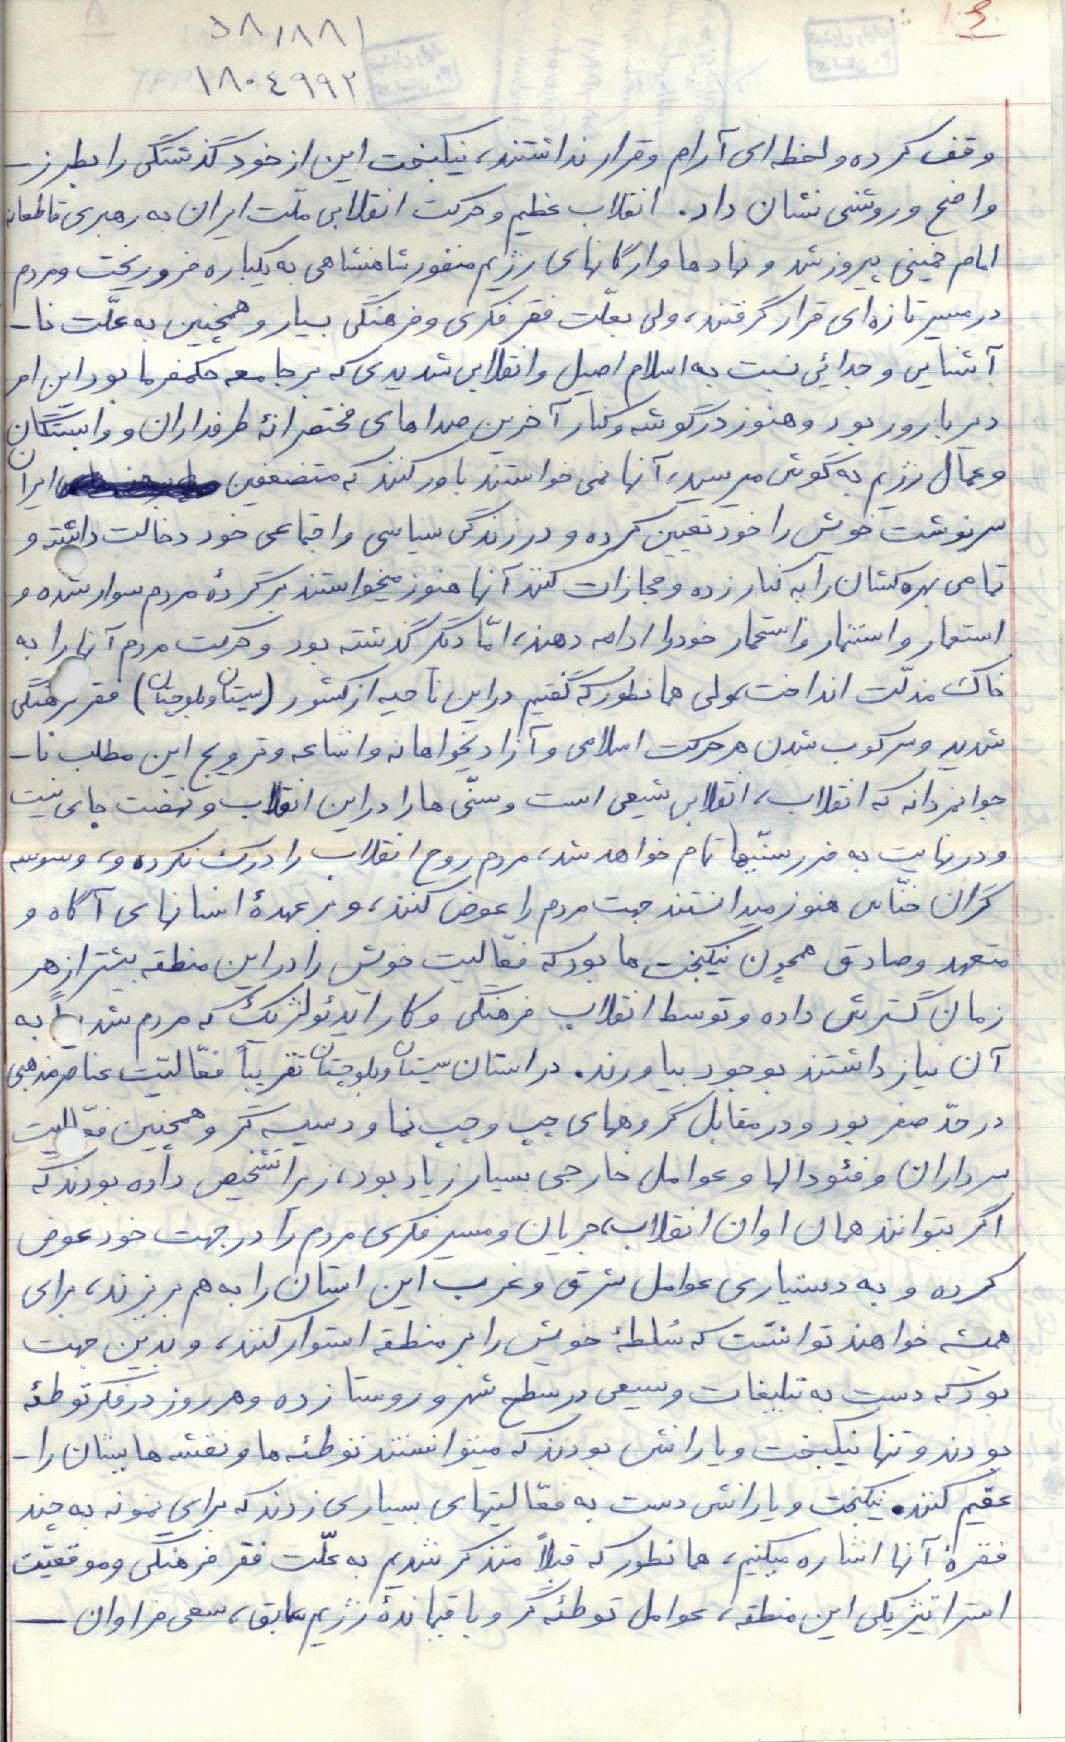 ۵۸/۸۸۱
۱۸۰۴۹۹۲
وقف کرده و لحظه‌ای آرام و قرار نداشتند، نیکبخت این از خود گذشتگی را بطرز ـ
واضح و روشنی نشان داد. انقلاب عظیم و حرکت انقلابی ملّت ایران به رهبری قاطعانه
امام خمینی پیروز شد و نهادها و ارگانهای رژیم منفور شاهنشاهی به یکباره فرو ریخت و مردم
در مسیر تازه‌ای قرار گرفتند، ولی بعلّت فقر فکری و فرهنگی بسیار و همچنین به علّت نا ـ
آشنایی و جدائی نسبت به اسلام اصیل و انقلابی شدیدی که بر جامعه حکمفرما بود این امر
دیر بارور بود و هنوز در گوشه و کنار آخرین صداهای محتضرانهٔ طرفداران و وابستگان
و عمال رژیم به گوش میرسید، آنها نمی خواستند باور کنند که مستضعفین ایران
سرنوشت خویش را خود تعیین کرده و در زندگی سیاسی و اجتماعی خود دخالت داشته و
تمامی بهره کشان را به کنار زده و مجازات کنند آنها هنوز میخواستند بر گردهٔ مردم سوار شده و
استعمار و استثمار و استحمار خود را ادامه دهند، امّا دیگر گذشته بود و حرکت مردم آنها را به
خاک مذلّت انداخت، ولی همانطور که گفتیم در این ناحیه از کشور (سیستان و بلوچستان) فقر فرهنگی
شدید و سرکوب شدن هر حرکت اسلامی و آزادیخواهانه و اشاعه و ترویج این مطلب نا ـ
جوانمردانه که انقلاب، انقلابی شیعی است و سنّی ها را در این انقلاب و نهضت جای نیست
و در نهایت به ضرر سنّیها تمام خواهد شد، مردم روح انقلاب را درک نکرده و، وسوسه
گران خنّاس هنوز میدانستند جهت مردم را عوض کنند، و بر عهدهٔ انسانهای آگاه و
متعهد و صادق همچون نیکبخت ها بود که فعّالیت خویش را در این منطقه بیشتر از هر
زمان گسترش داده و توسط انقلاب فرهنگی و کار ایدئولژیک که مردم شدیداً به
آن نیاز داشتند بوجود بیاورند. در استان سیستان و بلوچستان تقریباً فعّالیّت عناصر مذهبی
در حدّ صفر بود و در مقابل گروههای چپ و چپ نما و دسیسه گر و همچنین فعّالیت
سرداران و فئودالها و عوامل خارجی بسیار زیاد بود، زیرا تشخیص داده بودند که
اگر بتوانند همان اوان انقلاب، جریان و مسیر فکری مردم را در جهت خود عوض
کرده و به دستیاری عوامل شرق و غرب این استان را به هم بریزند، برای
همیشه خواهند توانست که سُلطهٔ خویش را بر منطقه استوار کنند، و بدین جهت
بود که دست به تبلیغات وسیعی در سطح شهر و روستا زده و هر روز در فکر توطئه
بودند و تنها نیکبخت و یارانش بودند که میتوانستند توطئه ها و نقشه هایشان را ـ
عقیم کنند. نیکبخت و یارانش دست به فعّالیتهای بسیاری زدند که برای نمونه به چند
فقرهٔ آنها اشاره میکنیم، همانطور که قبلاً متذکر شدیم به علّت فقر فرهنگی و موقعیّت
استراتیژیکی این منطقه، عوامل توطئه گر و باقیماندهٔ رژیم سابق، سعی فراوان ـ